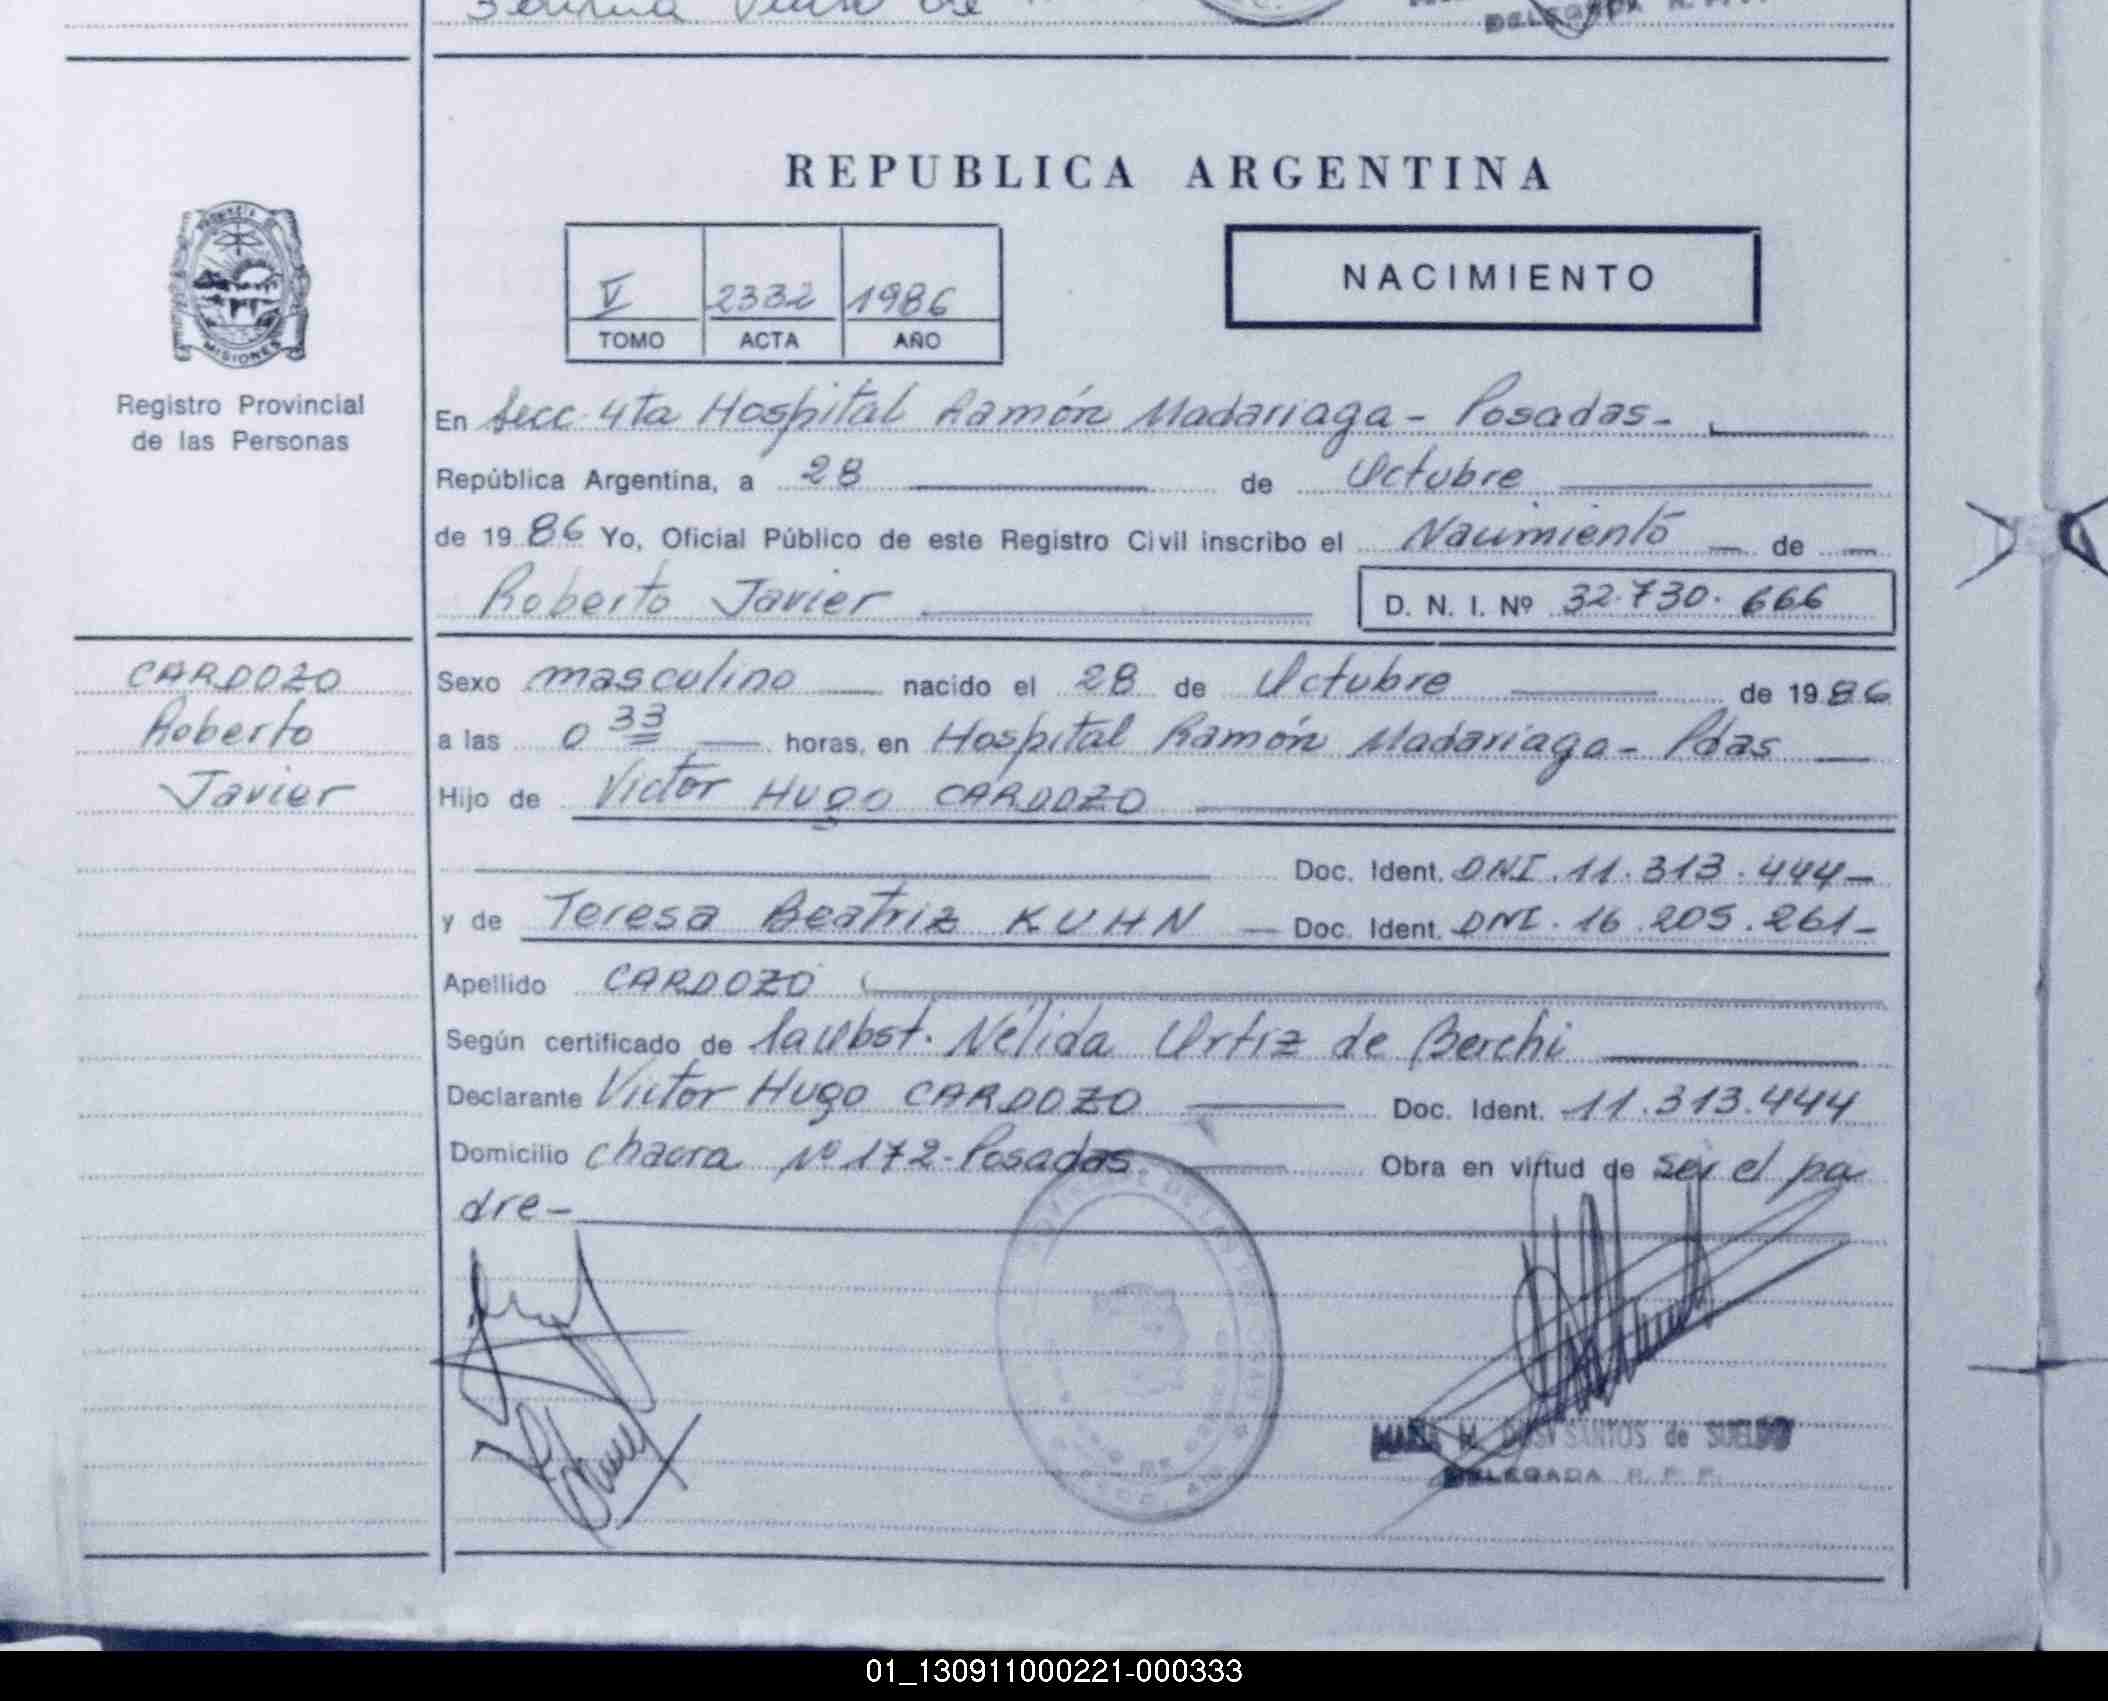 DELEGADA R. P. P.
REPUBLICA ARGENTINA
PROVINCIA DE
MISIONES
V 2332 1986
TOMO ACTA AÑO
NACIMIENTO
Registro Provincial
de las Personas
En Secc. 4ta Hospital Ramón Madariaga - Posadas-
República Argentina, a 28 de Octubre
de 1986 Yo, Oficial Público de este Registro Civil inscribo el Nacimiento de
Roberto Javier D. N. I. Nº 32.730.666
CARDOZO
Roberto
Javier
Sexo masculino nacido el 28 de Octubre de 1986
a las 0 33 horas, en Hospital Ramón Madariaga - Pdas
Hijo de Victor Hugo CARDOZO
Doc. Ident. DNI. 11.313.444-
y de Teresa Beatriz KUHN Doc. Ident. DNI. 16.205.261-
Apellido CARDOZO
Según certificado de la Obst. Nélida Ortiz de Berchi
Declarante Victor Hugo CARDOZO Doc. Ident. 11.313.444
Domicilio chacra Nº 172-Posadas Obra en virtud de ser el pa
dre-
MARIA M. DOS SANTOS de SUELDO
DELEGADA R. P. P.
01_130911000221-000333